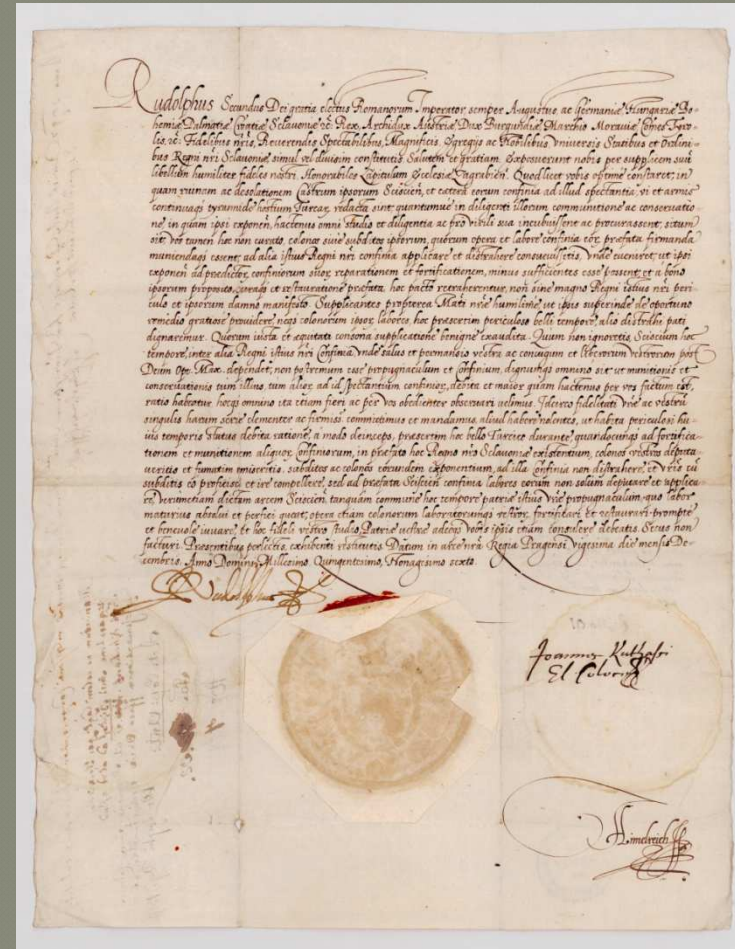 Rudolphus Secundus Dei gratia electus Romanorum Imperator semper Augustus, ac Germaniæ Hungariæ Bo-
hemiæ Dalmatiæ Croatiæ Sclavoniæ &c Rex, Archidux Austriæ Dux Burgundiæ Marchio Moraviæ Comes Tyro-
lis, &c. Fidelibus nris, Reverendis Spectabilibus, Magnificis, Egregijs ac Nobilibus universis Statibus et Ordini-
bus Regni nri Sclavoniæ simul vel divisim constitutis Salutem et gratiam. Exposuerunt nobis per supplicem suū
libellum humiliter fideles nostri Honorabiles Capitulum Ecclesiæ Zagrabien̄. Quod licet vobis optime constaret, in
quam ruinam ac desolationem Castrum ipsorum Sciscien̄, et cætera eorum confinia ad illud spectantia, vi et armis
continuaq̨ tyrannide hostium Turcar, redacta sint, quantumue in diligenti illorum communitione ac conservatio
ne, in quam ipsi exponen̄, hactenus omni studio et diligentia ac pro virili sua incubuissent ac procurassent, situm
sit, vos tamen hoc non curato, colonos sive subditos ipsorum, quorum opera et labore confinia eor, præfata firmanda
muniendaq̨ essent, ad alia istius Regni nri confinia applicare et distrahere consuevissetis, Unde eveniret, ut ipsi
exponen̄ ad prædictor, confiniorum suor, reparationem et fortificationem, minus sufficientes esse possent, et a bono
ipsorum proposito, operaq̨ et restauratione præfata, hoc pacto retraherentur, non sine magno Regni istius nri peri-
culo et ipsorum damno manifesto. Supplicantes propterea Mati nræ humilime, ut ipsis superinde de oportuno
remedio gratiose providere, neq̨ colonorum ipsor, labores, hoc præsertim periculoso belli tempore, alio distrahi pati
dignaremur. Quorum iusta et æquitati consona supplicatione benigne exaudita. Quum non ignoretis, Sciscium hoc
tempore, inter alia Regni istius nri Confinia, unde salus et permansio vestra ac coniugum et liberorum vestrorum post
Deum Opt. Max. dependet, non postremum esse propugnaculum et Confinium, dignumq̨ omnino sit, ut munitionis et
conservationis tum illius, tum alior, ad id spectantium confinior, debita et maior quam hactenus per vos factum est,
ratio habeatur, hocq̨ omnino ita etiam fieri ac per vos obedienter observari velimus. Idcirco fidelitati vræ ac vestrū
singulis harum serie clementer ac firmiss. committimus et mandamus, aliud habere nolentes, ut habita periculosi hu-
ius temporis status debita ratione, a modo deinceps, præsertim hoc bello Turcico durante, quandocunq̨ ad fortifica-
tionem et munitionem aliquor, Confiniorum, in præfato hoc Regno nro Sclavoniæ existentium, colonos vestros deputa-
veritis et fumatim emiseritis, subditos ac colonos eorundem exponentium, ad illa Confinia non distrahere, et vris cū
subditis eo proficisci et ire compellere, sed ad præfata Sciscien̄ confinia labores eorum non solum deputare et applica-
re, verumetiam dictam arcem Sciscien̄, tanquam commune hoc tempore patriæ istius vræ propugnaculum, quo labor
maturius absolui et perfici queat, opera etiam colonorum laboratorumq̨ vestror, fortificari et restaurari prompte
et benevole iuvare, et hoc fideli vestro studio, Patriæ vestræ adeoq̨ vobis ipsis etiam consulere debeatis. Secus non
facturi. Præsentibus perlectis, exhibenti restitutis. Datum in arce nrā Regia Pragensi, vigesima die mensis De-
cembris, Anno Domini Millesimo, Quingentesimo, Nonagesimo sexto.
Rudolphus
Joannes Kuthassi
El. Coloceñ
Himelreich